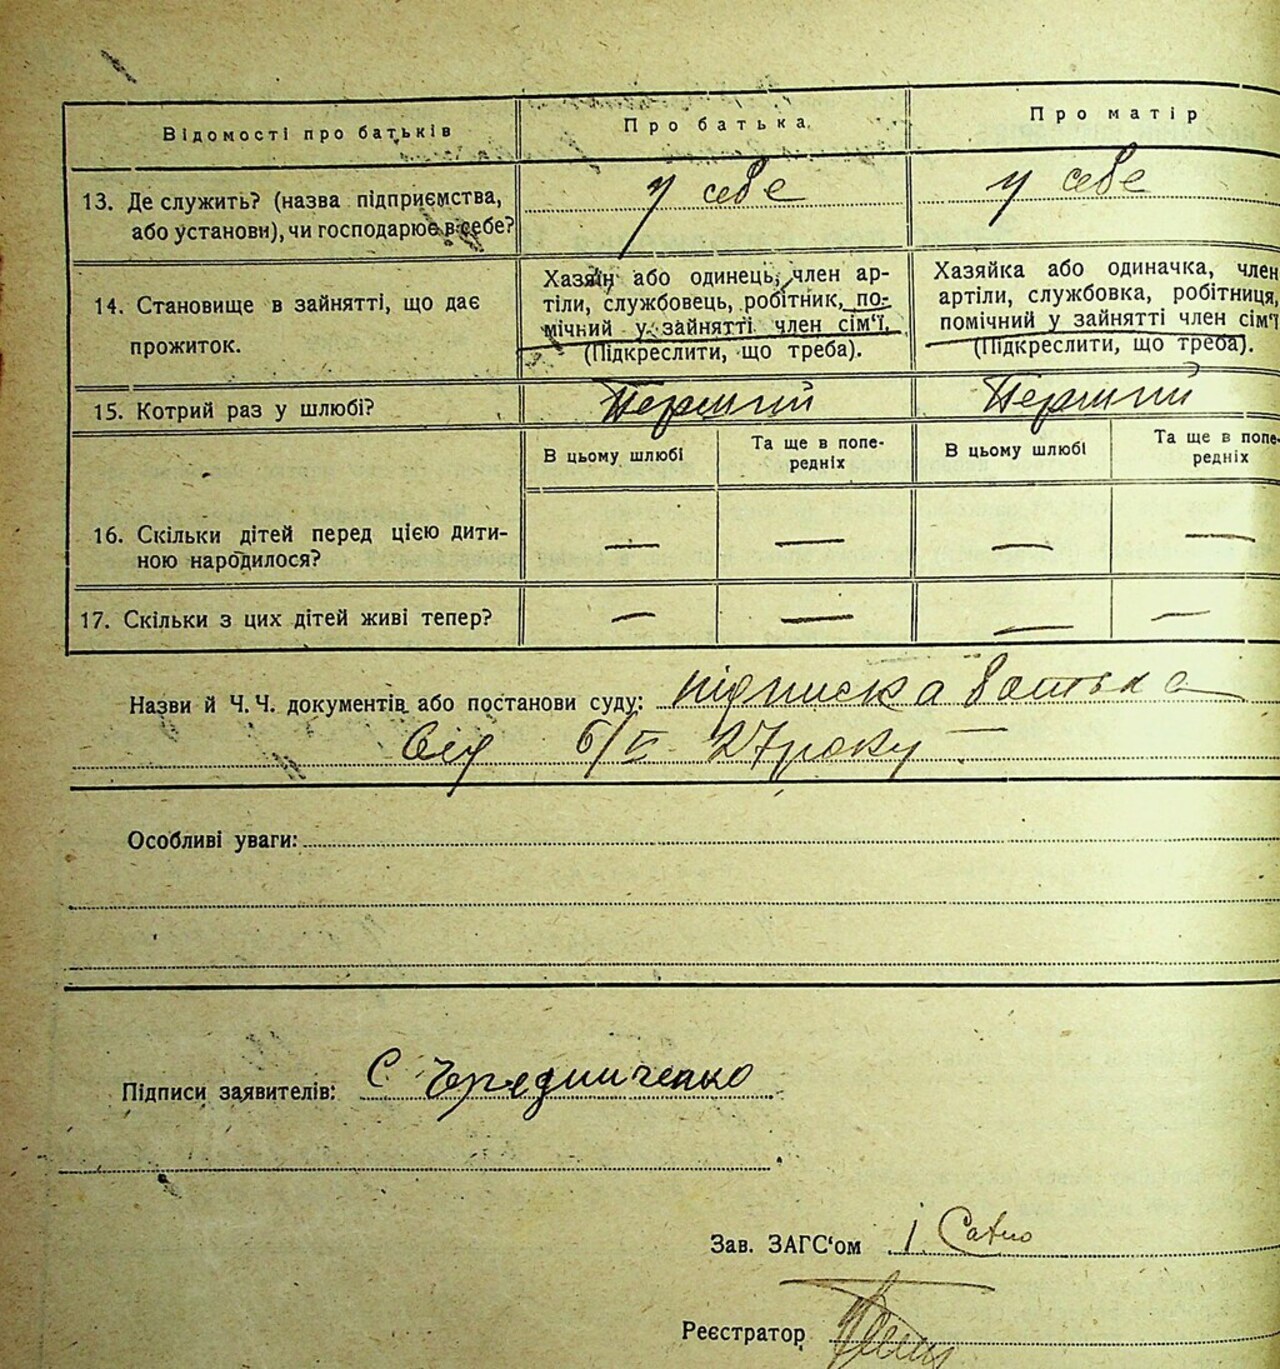 Відомості про батьків
Про батька
Про матір
13. Де служить? (назва підприємства,
або установи), чи господарює в себе?
у себе
у себе
14. Становище в зайнятті, що дає
прожиток.
Хазяїн або одинець, член ар-
тіли, службовець, робітник, по-
мічний у зайнятті член сім‘ї.
(Підкреслити, що треба).
Хазяйка або одиначка, член
артіли, службовка, робітниця,
помічний у зайнятті член сім‘ї
(Підкреслити, що треба).
15. Котрий раз у шлюбі?
Перший
Перший
В цьому шлюбі
Та ще в попе-
редніх
В цьому шлюбі
Та ще в попе-
редніх
16. Скільки дітей перед цією дити-
ною народилося?
—
—
—
—
17. Скільки з цих дітей живі тепер?
—
—
—
—
Назви й Ч. Ч. документів або постанови суду: підписка батька
від 6/V 27 року —
Особливі уваги:
Підписи заявителів: С. Чередниченко
Зав. ЗАГС‘ом І.
Реєстратор